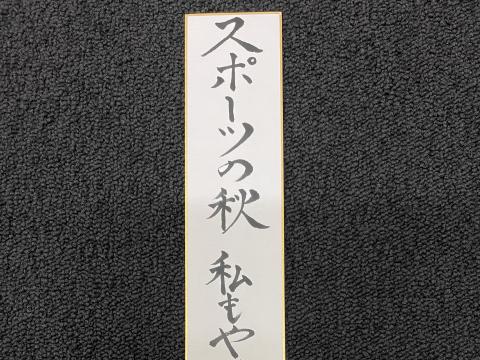 スポーツの秋 私もや